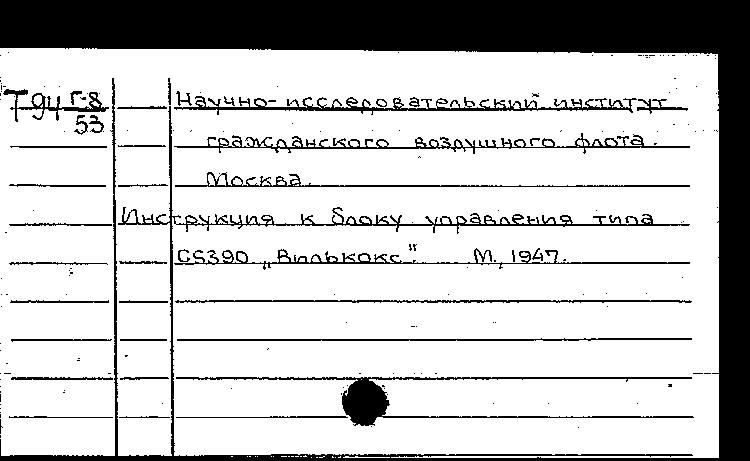 Т94 Г-8/53
Научно-исследовательский институт
гражданского воздушного флота.
Москва.
Инструкция к блоку управления типа
CS390 „Вилькокс". М., 1947.